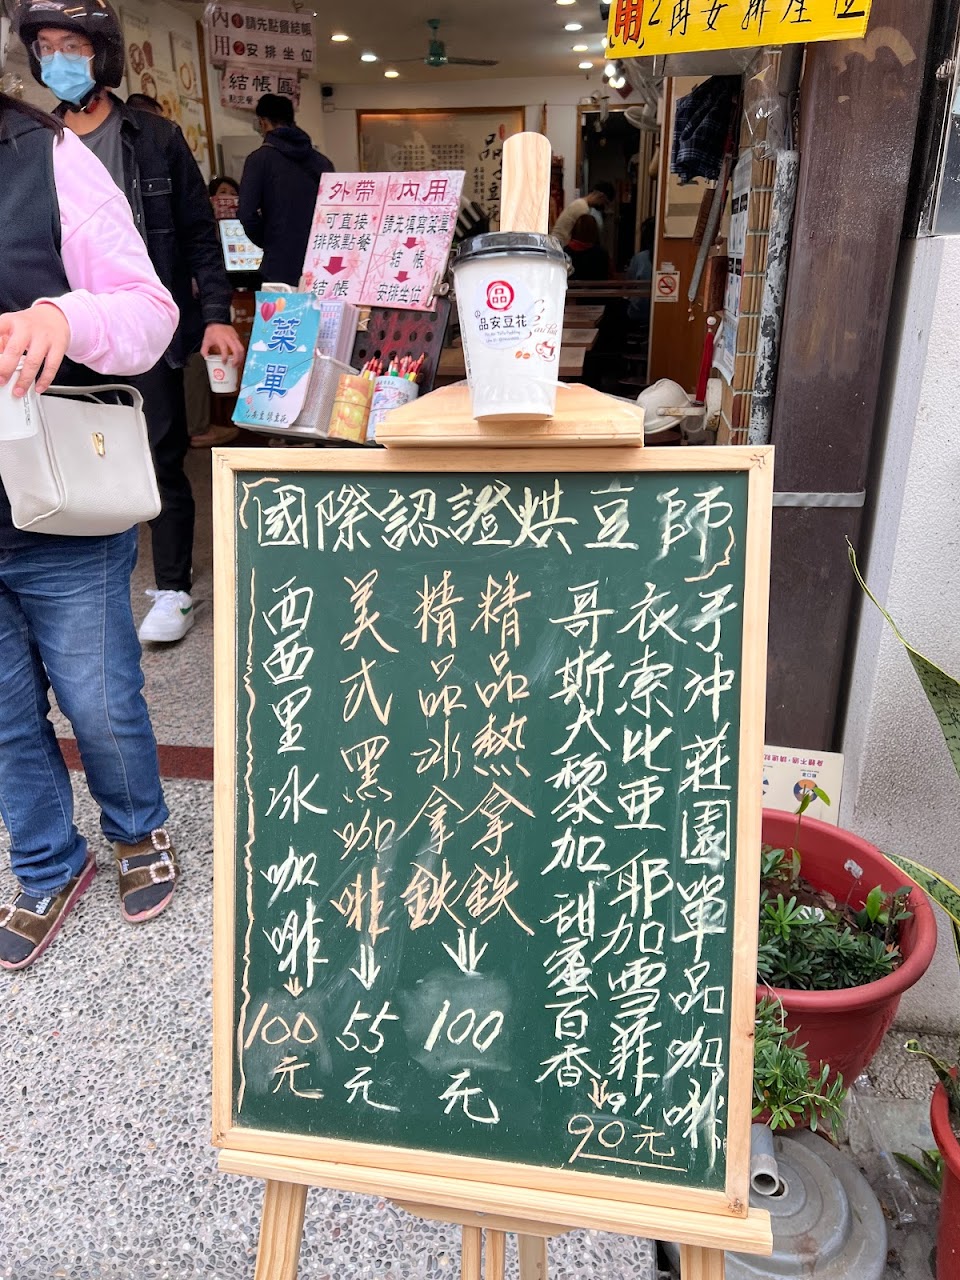 內用
1 請先點餐結帳
2 安排坐位
結帳區
用 2 再安排座位
外帶
可直接
排隊點餐
結帳
內用
請先填寫菜單
結帳
安排坐位
菜單
品安豆花
品安豆花
國際認證烘豆師
手沖莊園單品咖啡
衣索比亞 耶加雪菲
哥斯大黎加甜蜜百香
90元
精品熱拿鉄
精品冰拿鉄
100元
美式黑咖啡
55元
西西里冰咖啡
100元